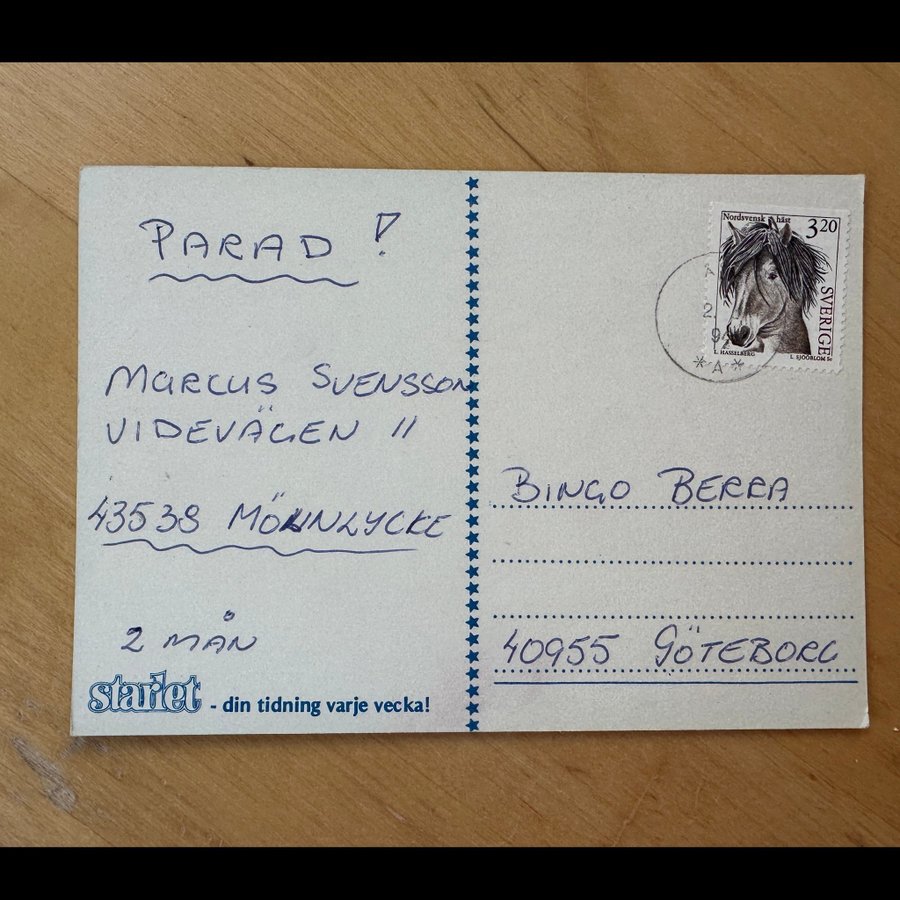 PARAD!
MARCUS SVENSSON
VIDEVÄGEN 11
43538 MÖLNLYCKE
2 MÅN
starlet - din tidning varje vecka!
Nordsvensk häst
3 20
SVERIGE
L. HASSELBERG
L. SJÖÖBLOM SC
* A *
BINGO BERRA
40955 GÖTEBORG